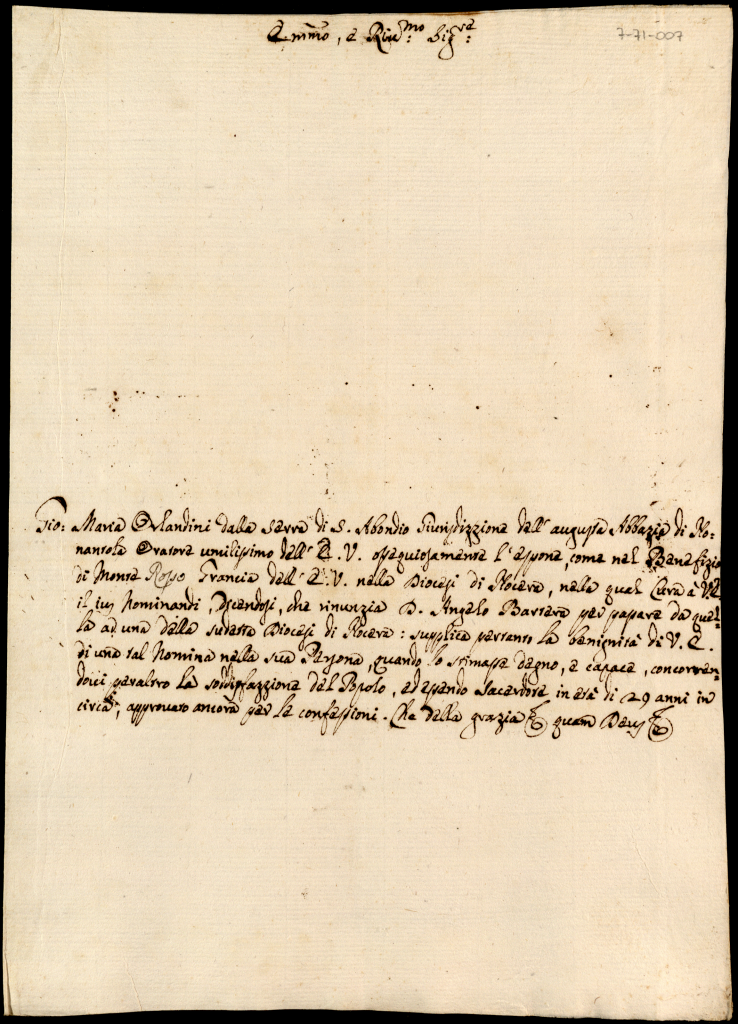 Emmo, e Rev:mo Sig:re
7-71-007
Gio: Maria Orlandini dalla Serra di S. Abondio Giurisdizzione dell' augusta Abbazia di No-
nantola Oratore umilissimo dell' E. V. ossequiosamente l'espone, come nel Benefizio
di Monte Rosso Francia dell' E. V. nella Diocesi di Nocera, nella qual Cura à V.E.
il ius Nominandi, Dicendosi, che rinunzia D. Angelo per passare da quel-
la ad una della sudetta Diocesi di Nocera: supplica pertanto la benignità di V. E.
di una tal Nomina nella sua Persona, quando lo stimasse degno, e capace, concorren-
doci peraltro la soddisfazzione del Popolo, ed essendo Sacerdote in età di 29 anni in
circa, approvato ancora per le confessioni. Che della grazia &c quam Deus &c